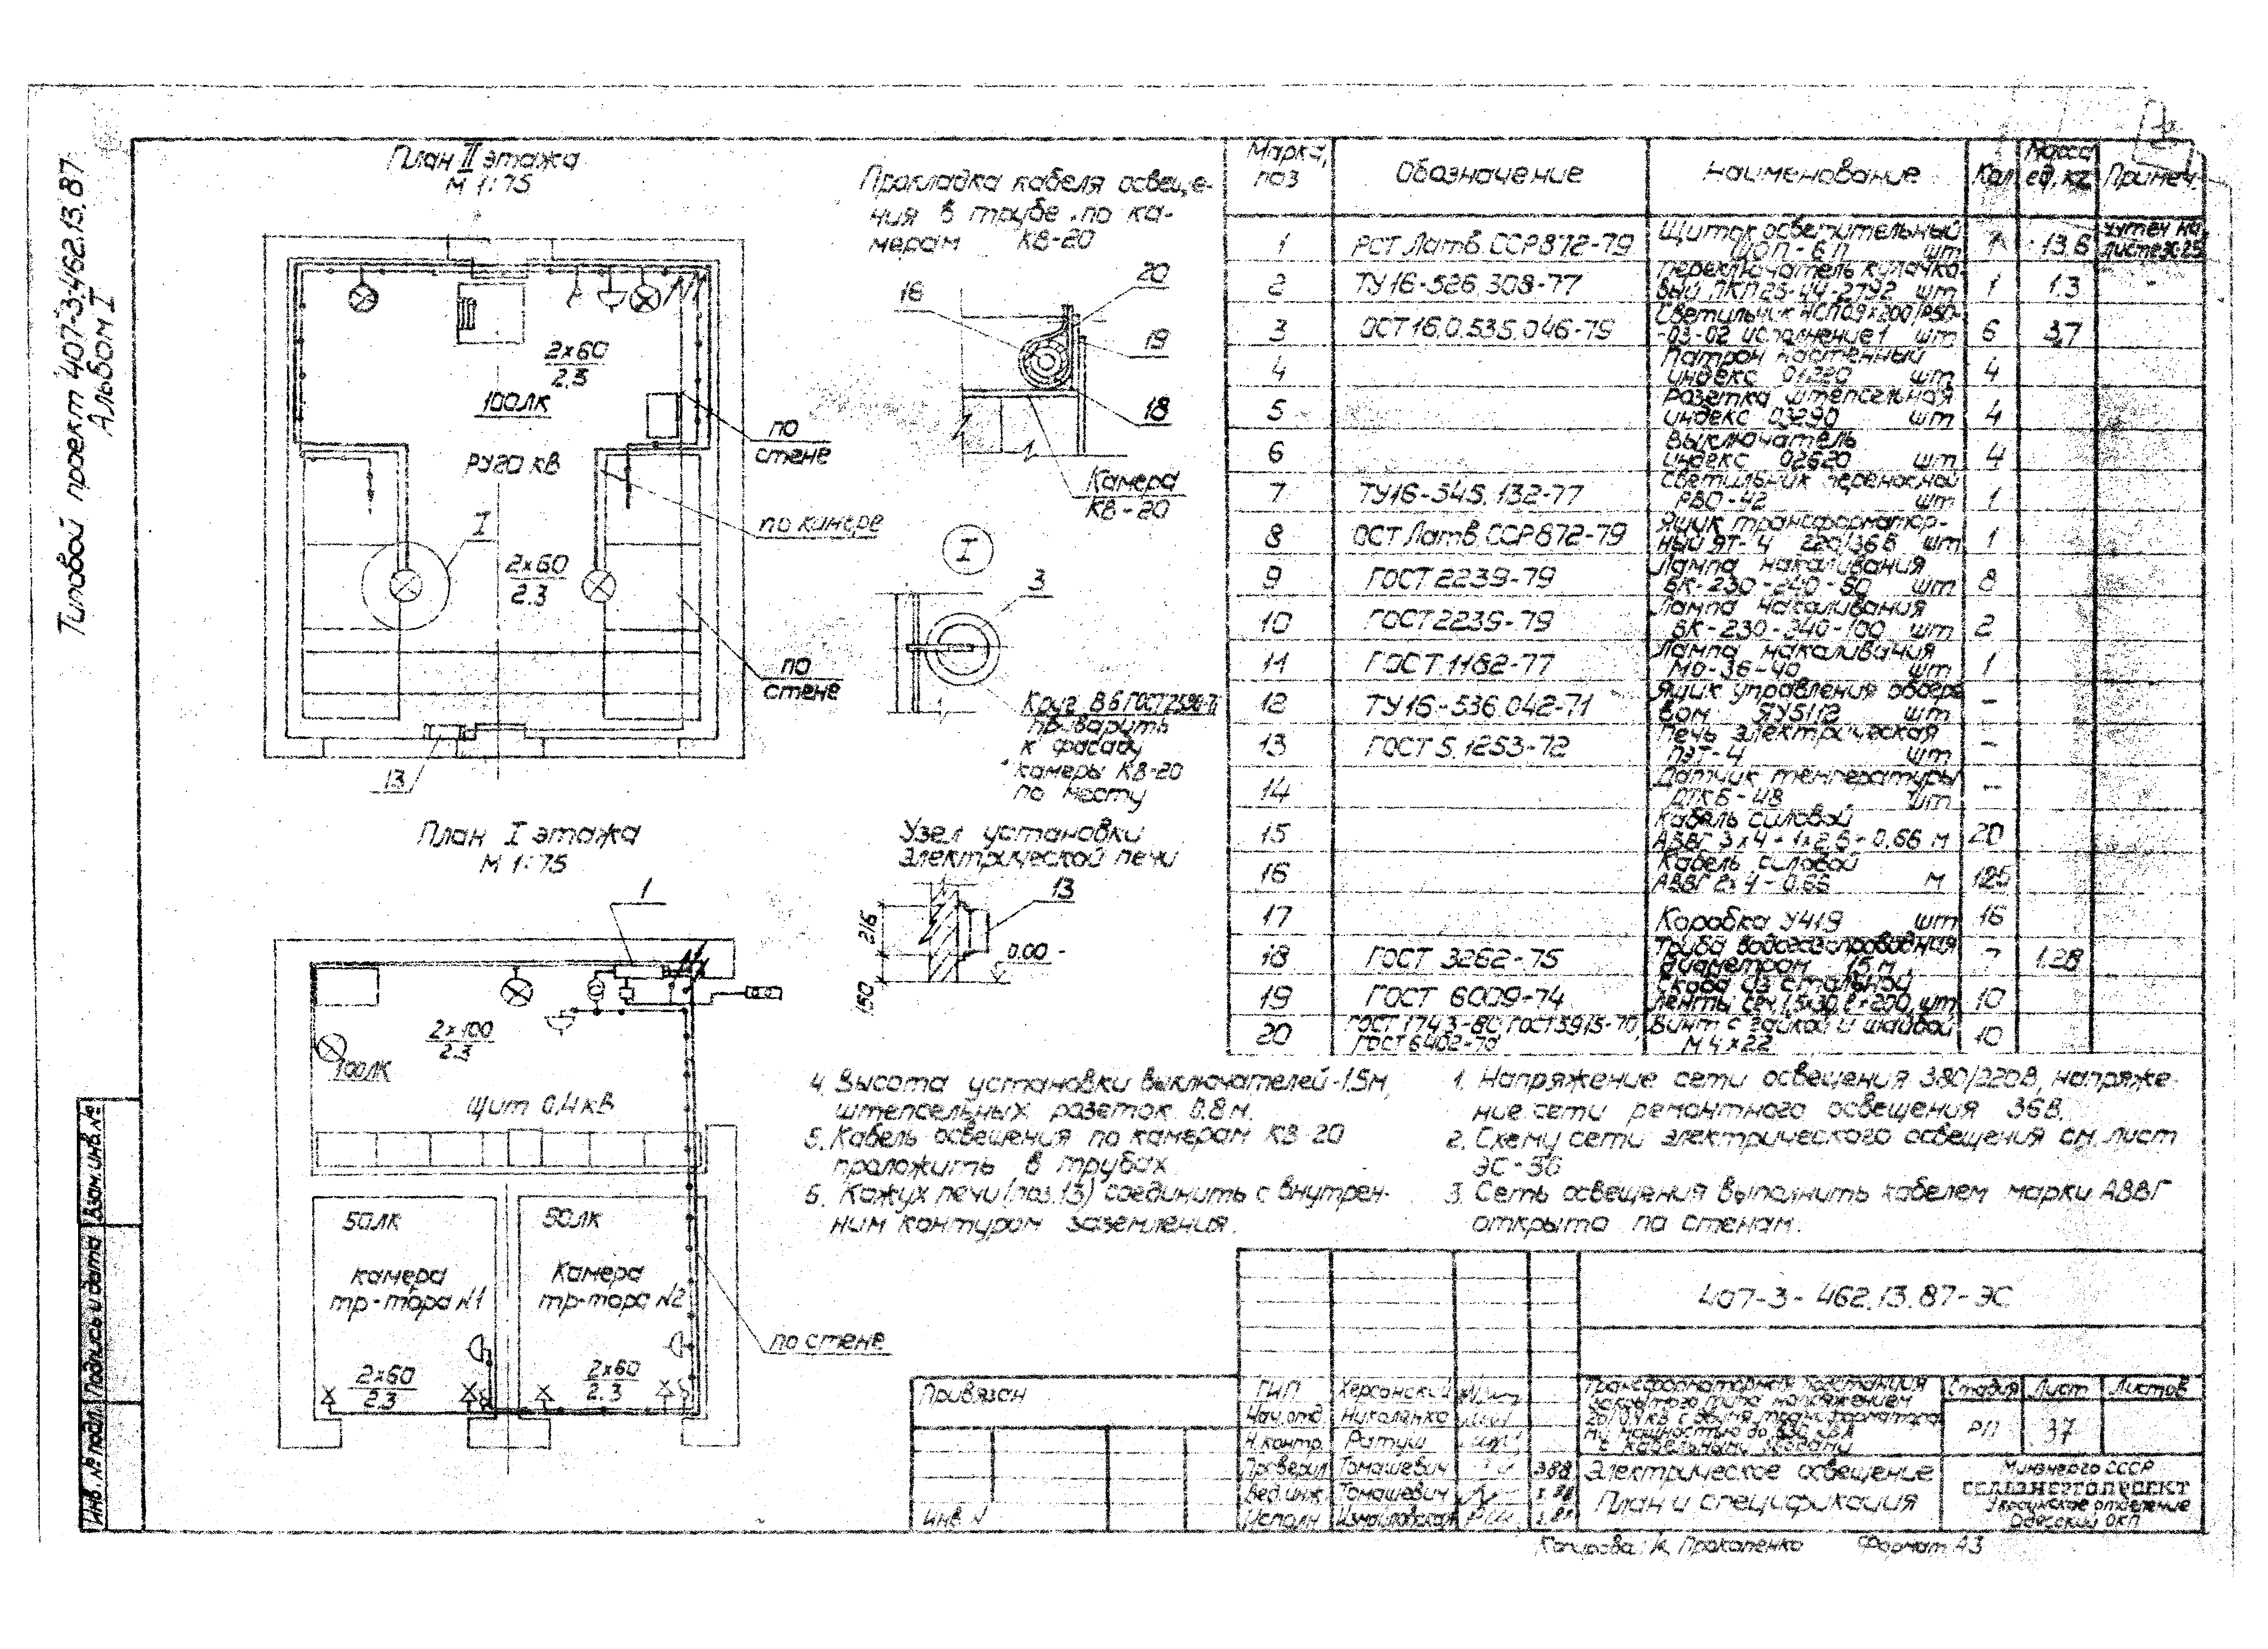 Типовой проект 407-3-462.13.87
Альбом I
План II этажа
М 1:75
2х60
2.5
100лк
РУ20 кВ
по
стене
по камере
I
2х60
2.3
по
стене
13
План I этажа
М 1:75
1
2х100
2.3
100лк
Щит 0,4кВ
50лк
50лк
камера
тр-тора №1
Камера
тр-тора №2
2х60
2.3
2х60
2.3
по стене
Прокладка кабеля освеще-
ния в трубе по ка-
мерам КВ-20
16
20
19
18
Камера
КВ-20
I
3
Круг В6 ГОСТ 2590-71
приварить
к фасаду
камеры КВ-20
по месту
Узел установки
электрической печи
13
216
150
0.00
Марка, поз Обозначение Наименование Кол Масса ед. кг Примеч.
1 РСТ Латв. ССР 872-79 Щиток осветительный ЩОП-6П шт 1 13.6 учтен на
2 ТУ16-526.308-77 Переключатель кулачко-
вый ПКП25-44-2У92 шт 1 1.3 -
3 ОСТ 16.0.535.046-79 Светильник НСП09х200/Р50-
-03-02 исполнение 1 шт 6 3.7
4 Патрон настенный
индекс 01220 шт 4
5 Розетка штепсельная
индекс 03290 шт 4
6 Выключатель
индекс 02620 шт 4
7 ТУ16-545.132-77 Светильник переносной
РВО-42 шт 1
8 ОСТ Латв. ССР 872-79 Ящик трансформатор-
ный ЯТ-4 220/36В шт 1
9 ГОСТ 2239-79 Лампа накаливания
БК-230-240-60 шт 8
10 ГОСТ 2239-79 Лампа накаливания
БК-230-340-100 шт 2
11 ГОСТ 1182-77 Лампа накаливания
МО-36-40 шт 1
12 ТУ16-536.042-71 Ящик управления обогре
вом ЯУ5112 шт -
13 ГОСТ 5.1253-72 Печь электрическая
ПЭТ-4 шт -
14 Датчик температуры
ДТКБ-48 шт --
15 Кабель силовой
АВВГ 3х4+1х2,5-0,66 м 20
16 Кабель силовой
АВВГ 2х4-0,66 м 125
17 Коробка У419 шт 16
18 ГОСТ 3262-75 Труба водогазопроводная
диаметром 15 м 7 1.28
19 ГОСТ 6009-74 Скоба из стальной
ленты сеч.1,5х30, l=200, шт 10
20 ГОСТ 1743-80, ГОСТ 5915-70, ГОСТ 6402-70 Винт с гайкой и шайбой
М4х22 10
4. Высота установки выключателей-1.5м,
штепсельных розеток 0.8м.
5. Кабель освещения по камерам КВ-20
проложить в трубах
6. Кожух печи (поз.13) соединить с внутрен-
ним контуром заземления.
1. Напряжение сети освещения 380/220В, напряже-
ние сети ремонтного освещения 36В.
2. Схему сети электрического освещения см. лист
ЭС-36
3. Сеть освещения выполнить кабелем марки АВВГ
открыто по стенам.
Инв. № подл. Подпись и дата Взам. инв. №
Привязан
Инв. №
ГИП Херсонский
Нач. отд. Николенко
Н. контр. Ратуш
Проверил Томашевич 3.88
Вед. инж. Томашевич
Исполн. Измайловская
407-3-462.13.87-ЭС
Трансформаторная подстанция
закрытого типа напряжением
20/0,4 кВ с двумя трансформатора
ми мощностью до 630 кВА
с кабельными вводами
Стадия Лист Листов
РП 37
Электрическое освещение
План и спецификация
Минэнерго СССР
СЕЛЬЭНЕРГОПРОЕКТ
Украинское отделение
Одесский ОКП
Копировал Прокопенко Формат А3